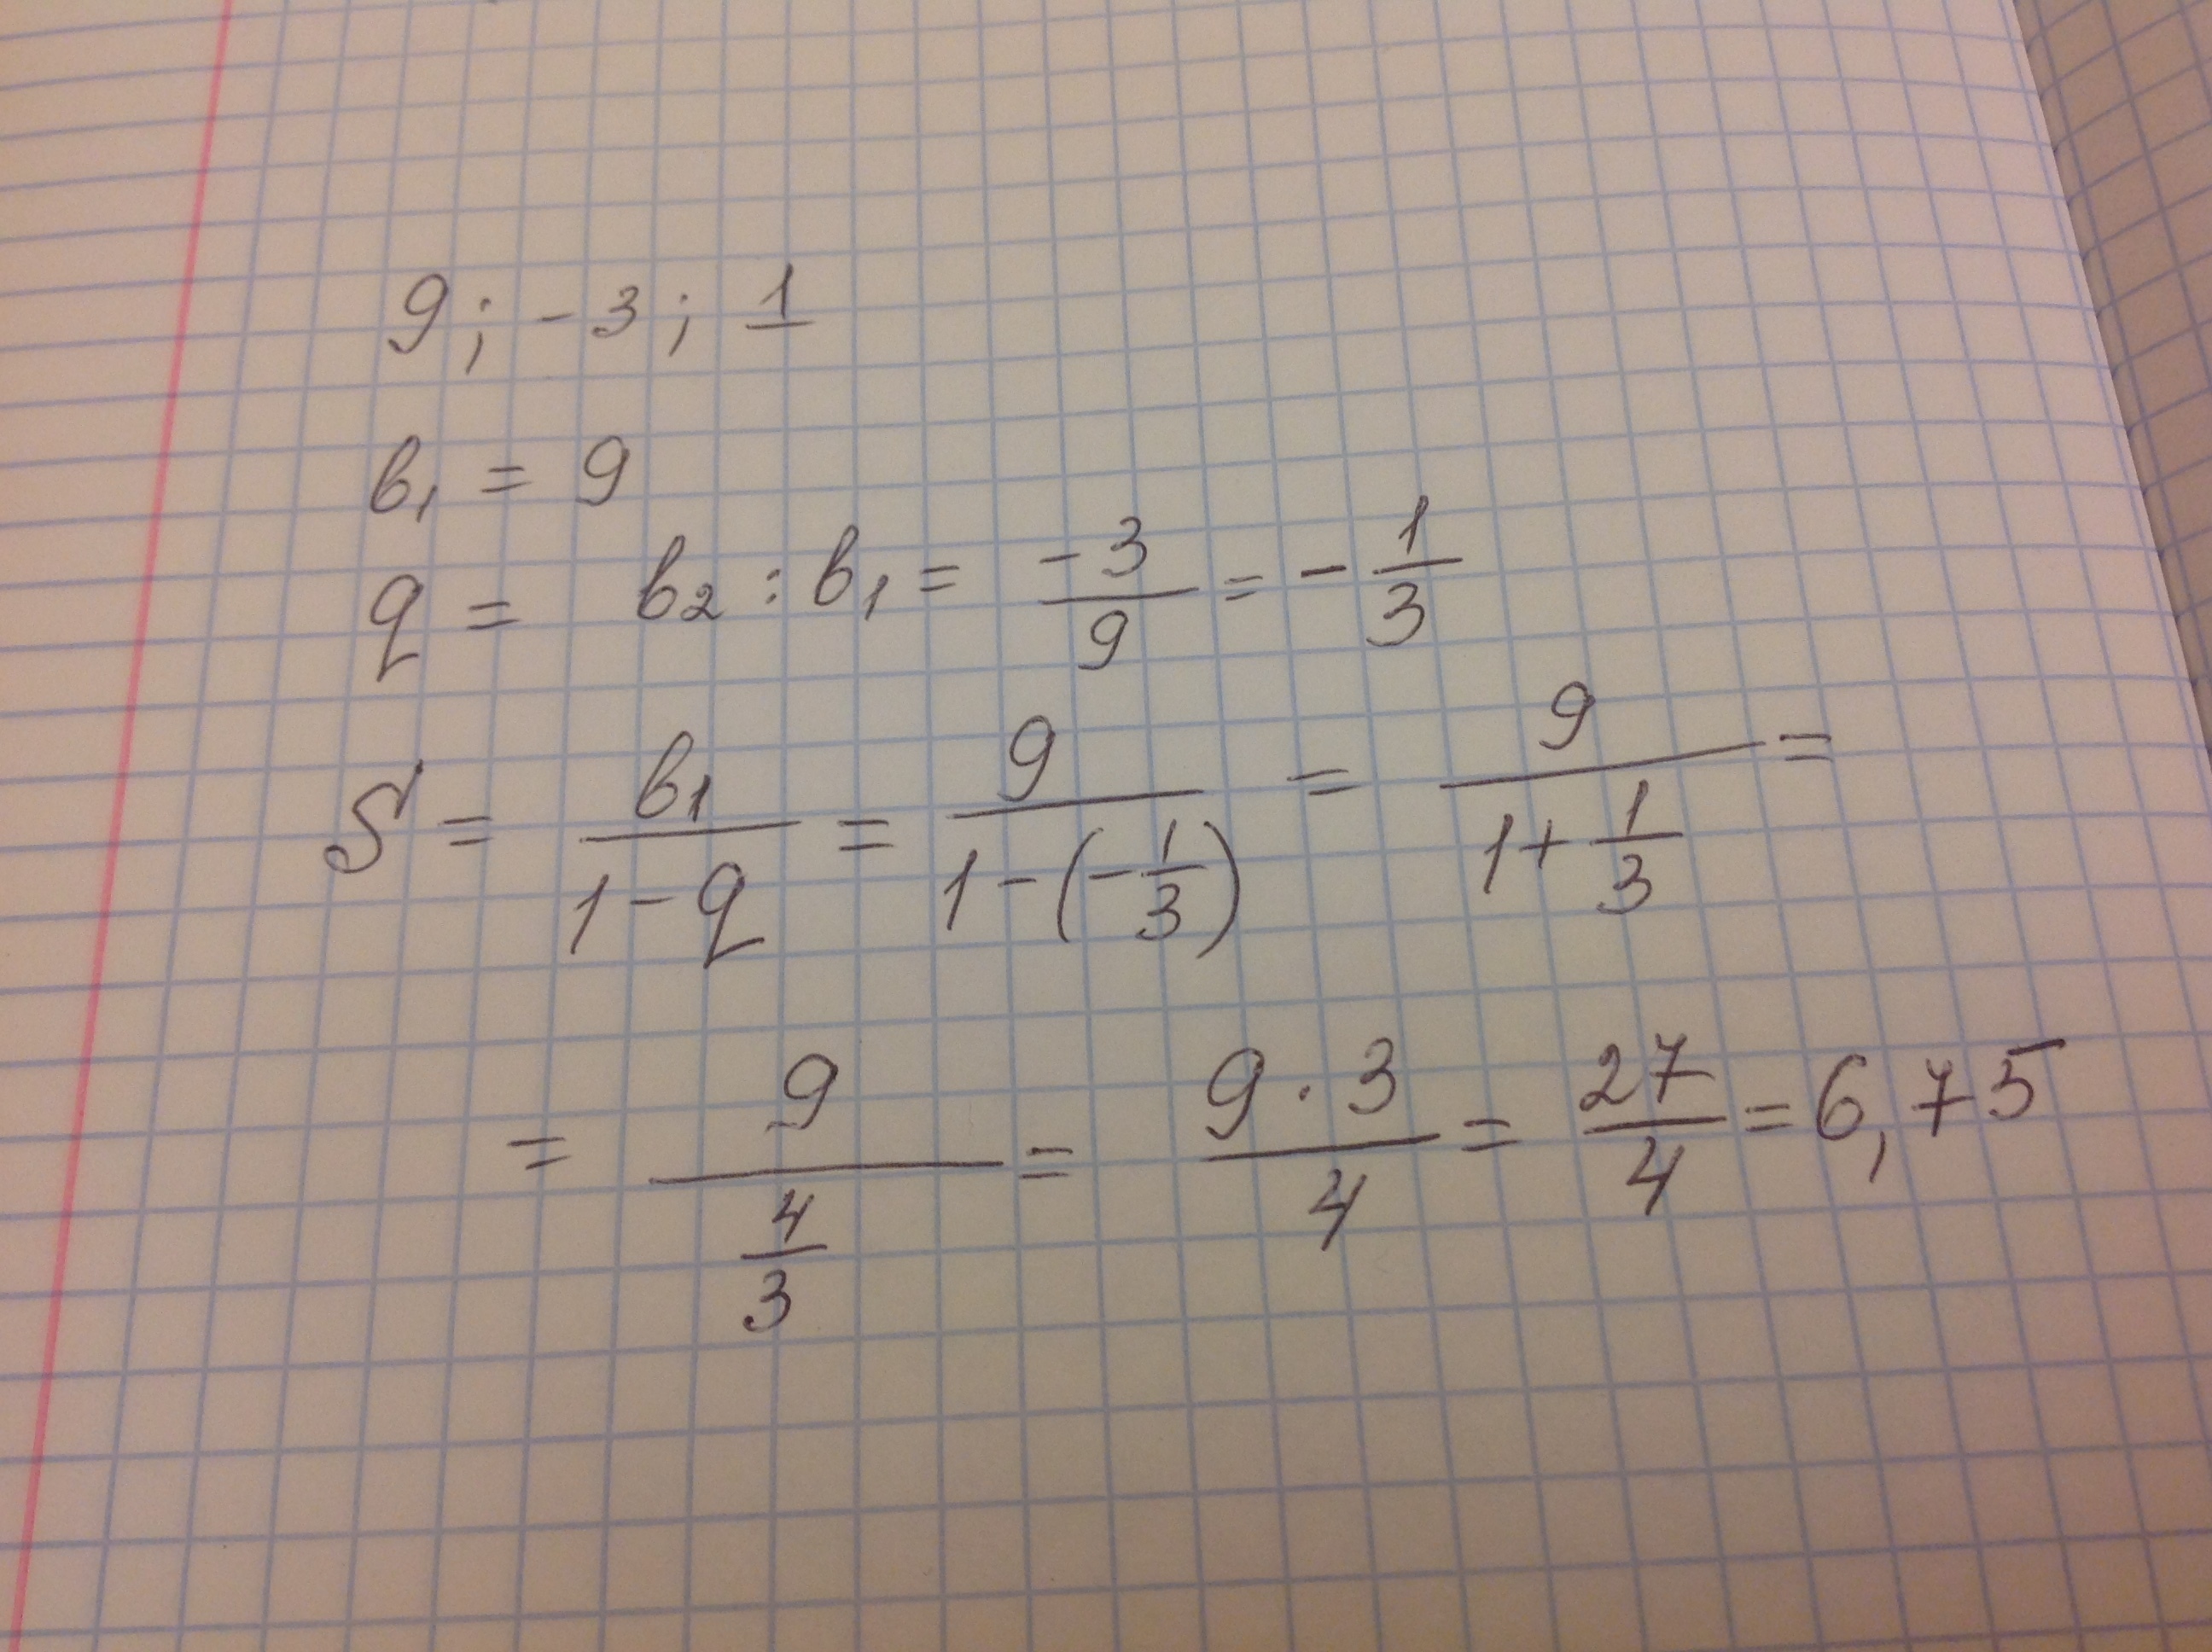 9; -3; 1
b₁ = 9
q = b₂ : b₁ = -3/9 = -1/3
S = b₁/(1-q) = 9/(1-(-1/3)) = 9/(1+1/3) =
= 9/(4/3) = 9·3/4 = 27/4 = 6,75